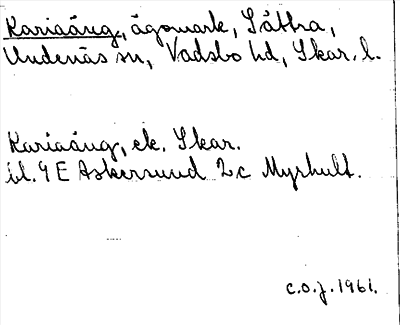 Kariaäng, ägomark, Sätra,
Undenäs sn, Vadsbo hd, Skar. l.
Kariaäng, ek. Skar.
bl. 9 E Askersund 2c Myrhult.
c.o.j. 1961.